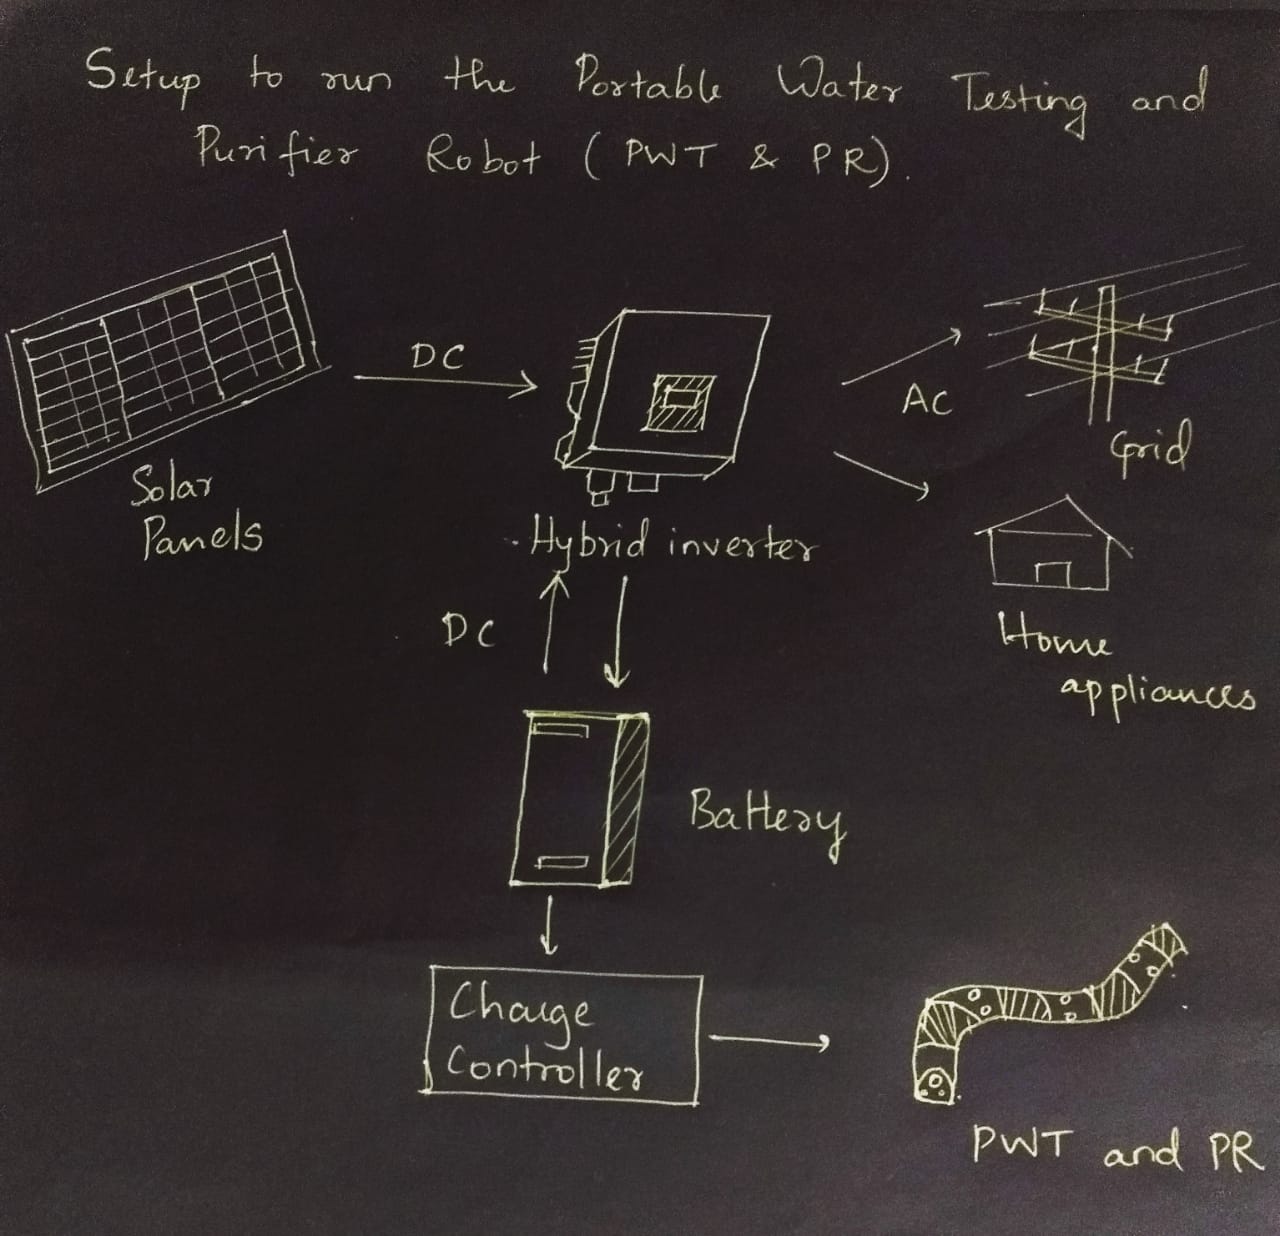 Setup to run the Portable Water Testing and
Purifier Robot (PWT & PR).
DC
AC
Grid
Solar
Panels
Hybrid inverter
DC
Home
appliances
Battery
Charge
Controller
PWT and PR